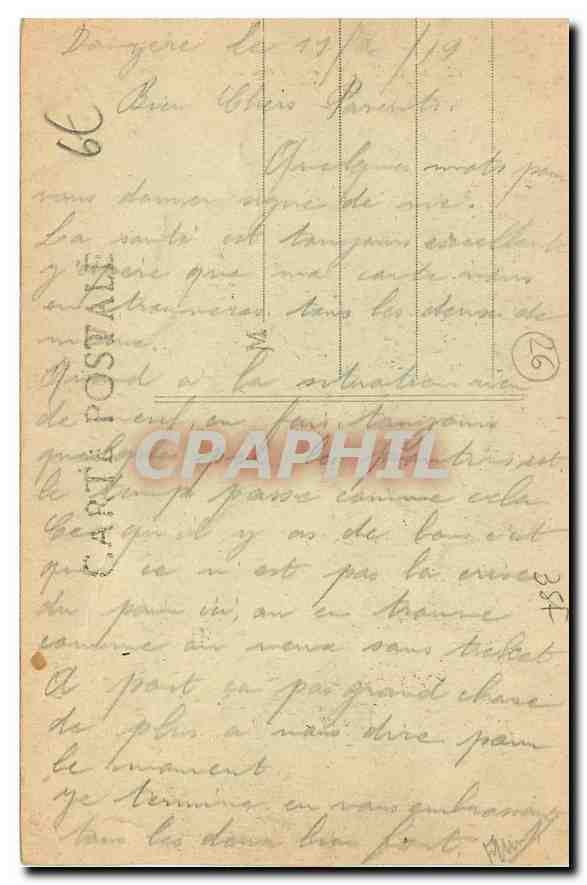 le 11/2/19
Bien Chers Parents.
Quelques mots pour
vous donner signe de vie.
La santé est toujours excellente
j'espère que ma carte vous
en trouveras tous les deux de
même.
Quand a la situation rien
de neuf, on fait toujours
quelque
le temps passe comme cela
Ce qu'il y as de bon c'est
que ce n'est pas la crise
du pain ici, on en trouve
comme on veux sans ticket
A part ça pas grand chose
de plus a vous dire pour
le moment.
Je termine en vous embrassant
tous les deux bien fort.
CARTE POSTALE
M
26
CPAPHIL